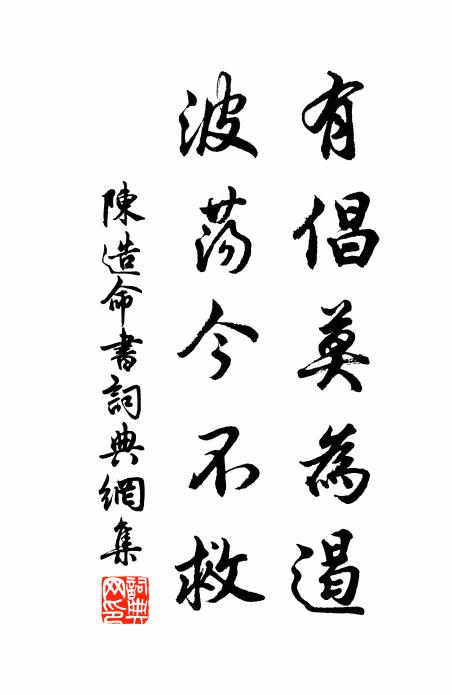 有倡莫為遏
波蕩今不救
陳造命書詞典網集
詞典网印